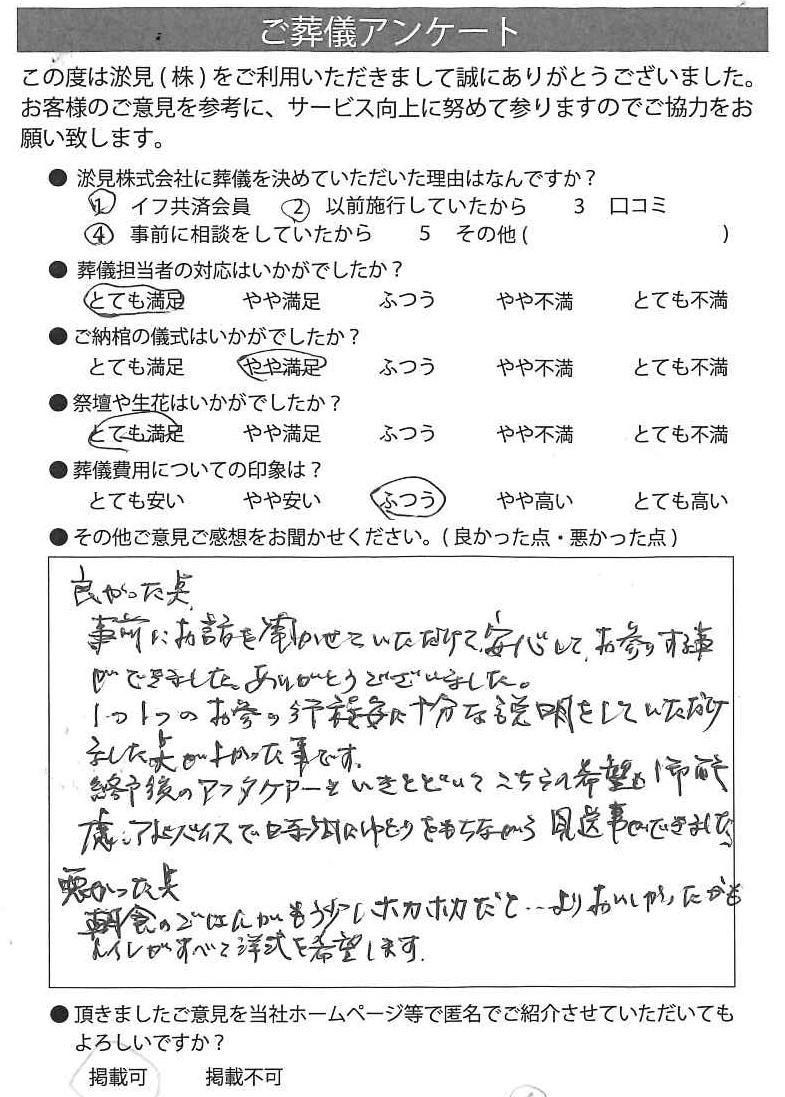 ご葬儀アンケート
この度は淤見(株)をご利用いただきまして誠にありがとうございました。
お客様のご意見を参考に、サービス向上に努めて参りますのでご協力をお
願い致します。
● 淤見株式会社に葬儀を決めていただいた理由はなんですか?
1 イフ共済会員 2 以前施行していたから 3 口コミ
4 事前に相談をしていたから 5 その他( )
● 葬儀担当者の対応はいかがでしたか?
とても満足 やや満足 ふつう やや不満 とても不満
● ご納棺の儀式はいかがでしたか?
とても満足 やや満足 ふつう やや不満 とても不満
● 祭壇や生花はいかがでしたか?
とても満足 やや満足 ふつう やや不満 とても不満
● 葬儀費用についての印象は?
とても安い やや安い ふつう やや高い とても高い
● その他ご意見ご感想をお聞かせください。(良かった点・悪かった点)
良かった点
事前にお話を聞かせていただけて、安心して、お参りする事
ができました。ありがとうございました。
1つ1つのお参り 十分な説明をしていただけ
ました点がよかった事です。
終了後のアフタケアーといきとどいて こちらの希望も
アドバイスで時間にゆとりをもちながら 見送事ができました
悪かった点
朝食のごはんがもう少しホカホカだと…よりおいしかったかも
トイレがすべて洋式を希望します。
● 頂きましたご意見を当社ホームページ等で匿名でご紹介させていただいても
よろしいですか?
掲載可 掲載不可